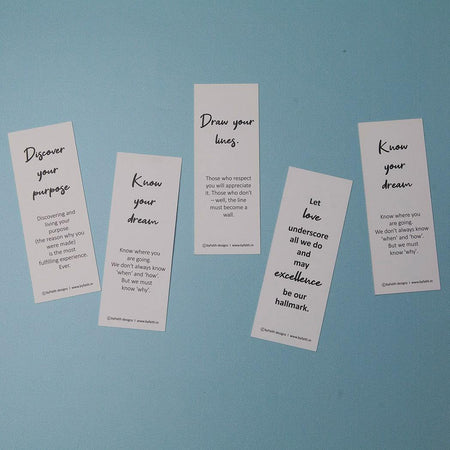 Discover
your
purpose
Discovering and
living your
purpose
(the reason why you
were made)
is the most
fulfilling experience.
Ever.
©byFaith designs | www.byfaith.in
Know
your
dream
Know where you
are going.
We don't always know
'when' and 'how'.
But we must
know 'why'.
©byFaith designs | www.byfaith.in
Draw your
lines.
Those who respect
you will appreciate
it. Those who don't
– well, the line
must become a
wall.
©byFaith designs | www.byfaith.in
Let
love
underscore
all we do
and
may
excellence
be our
hallmark.
©byFaith designs | www.byfaith.in
Know
your
dream
Know where you
are going.
We don't always know
'when' and 'how'.
But we must
know 'why'.
©byFaith designs | www.byfaith.in